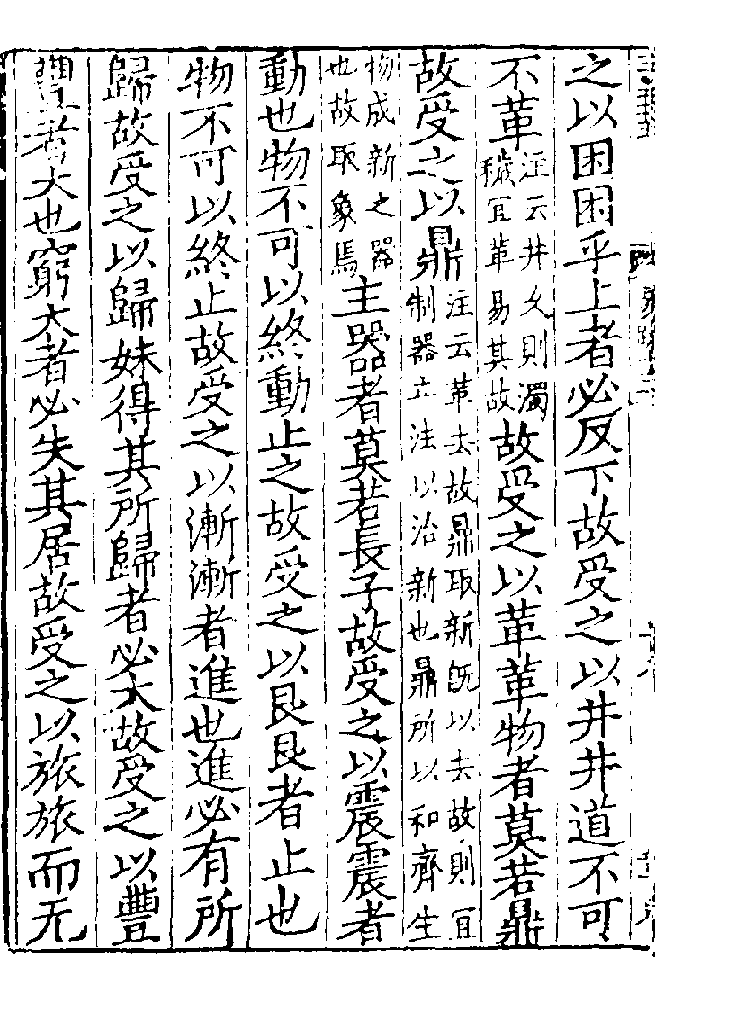 之以困困乎上者必反下故受之以井井道不可
不革注云井久則濁穢宜革易其故故受之以革革物者莫若鼎
故受之以鼎注云革去故鼎取新既以去故則宜制器立法以治新也鼎所以和齊生
物成新之器也故取象焉主器者莫若長子故受之以震震者
動也物不可以終動止之故受之以艮艮者止也
物不可以終止故受之以漸漸者進也進必有所
歸故受之以歸妹得其所歸者必大故受之以豐
豐者大也窮大者必失其居故受之以旅旅而无